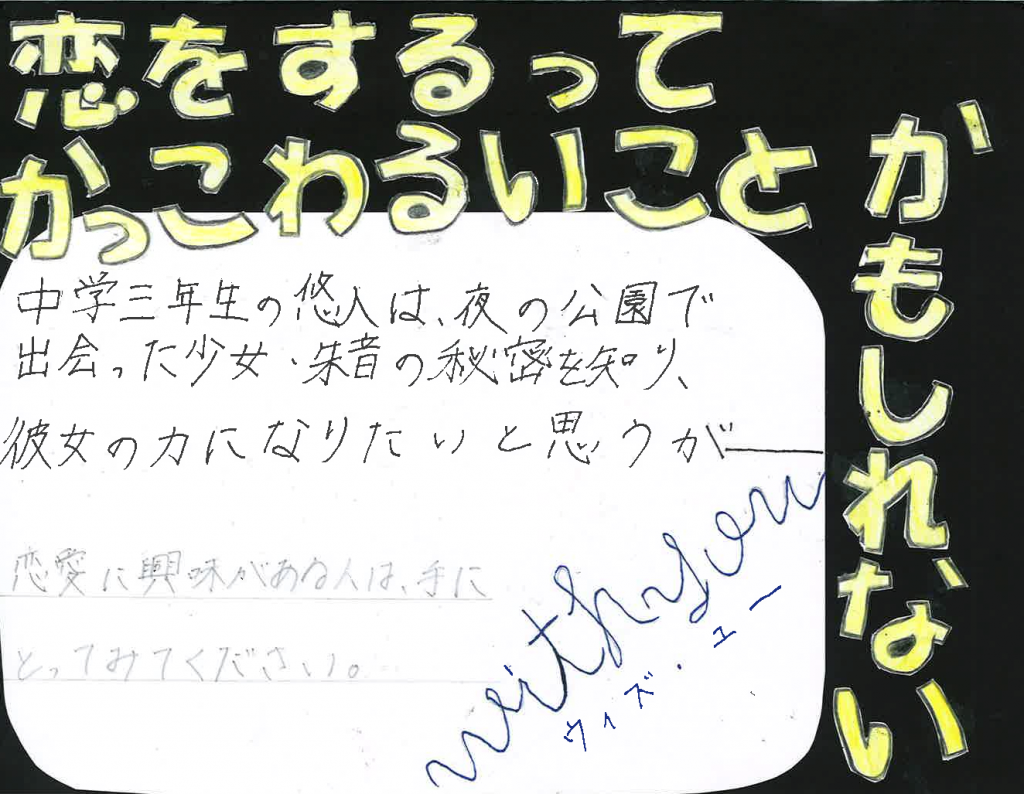 恋をするって
かっこわるいこと
かもしれない
中学三年生の悠人は、夜の公園で
出会った少女・朱音の秘密を知り、
彼女の力になりたいと思うが――
恋愛に興味がある人は、手に
とってみてください。
with you
ウィズ・ユー